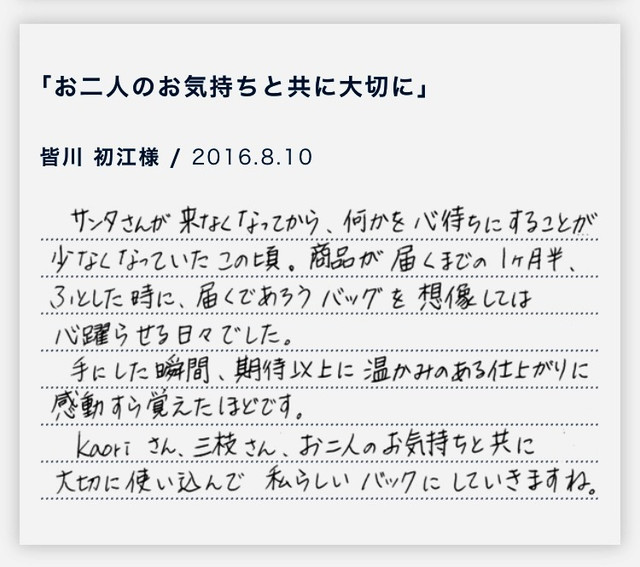 「お二人のお気持ちと共に大切に」
皆川 初江様 / 2016.8.10
サンタさんが来なくなってから、何かを心待ちにすることが
少なくなっていたこの頃。商品が届くまでの1ヶ月半、
ふとした時に、届くであろうバッグを想像しては
心躍らせる日々でした。
手にした瞬間、期待以上に温かみのある仕上がりに
感動すら覚えたほどです。
kaoriさん、三枝さん、お二人のお気持ちと共に
大切に使い込んで私らしいバックにしていきますね。